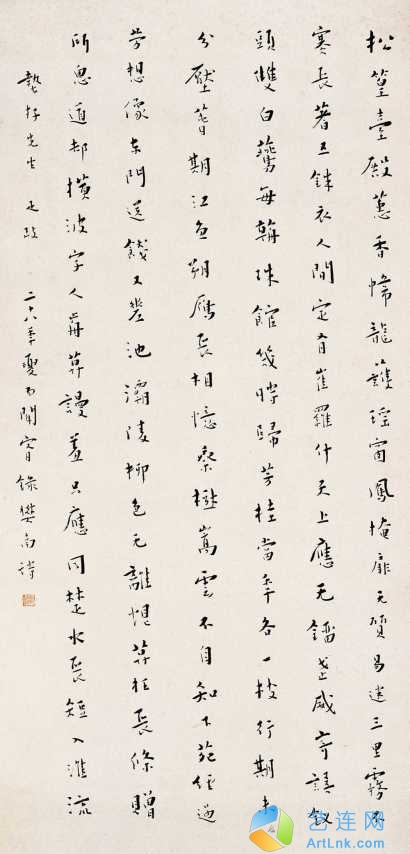 松篁臺殿蕙香幃龍護瑤窗鳳掩扉无質易迷三里霧不
寒長著五銖衣人間定有崔羅什天上應无鎦武威寄語釵
頭雙白鷰每朝珠館幾時歸芳桂當年各一枝行期未
分壓萅期江魚朔雁長相憶秦樹嵩雲不自知下苑經過
勞想像東門送餞又差池灞陵柳色无離恨莫枉長條贈
所思道却橫波字人前莫謾羞只應同楚水長短入淮流
蟄存先生正政 二六季夏聞宥錄樊南詩
艺连网
ArtLnk.Com